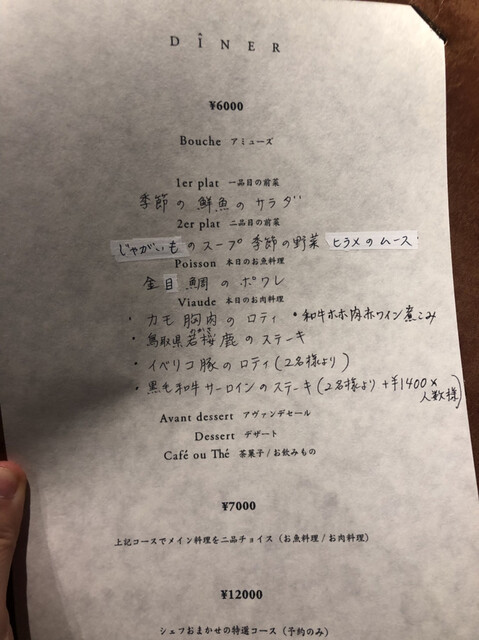 DÎNER
¥6000
Bouche アミューズ
1er plat 一品目の前菜
季節の鮮魚のサラダ
2er plat 二品目の前菜
じゃがいものスープ 季節の野菜 ヒラメのムース
Poisson 本日のお魚料理
金目鯛のポワレ
Viaude 本日のお肉料理
・カモ胸肉のロティ ・和牛ホホ肉赤ワイン煮こみ
わかさ
・鳥取県若桜鹿のステーキ
・イベリコ豚のロティ(2名様より)
・黒毛和牛サーロインのステーキ(2名様より +¥1400×人数様)
Avant dessert アヴァンデセール
Dessert デザート
Café ou Thé 茶菓子/お飲みもの
¥7000
上記コースでメイン料理を二品チョイス(お魚料理/お肉料理)
¥12000
シェフおまかせの特選コース(予約のみ)